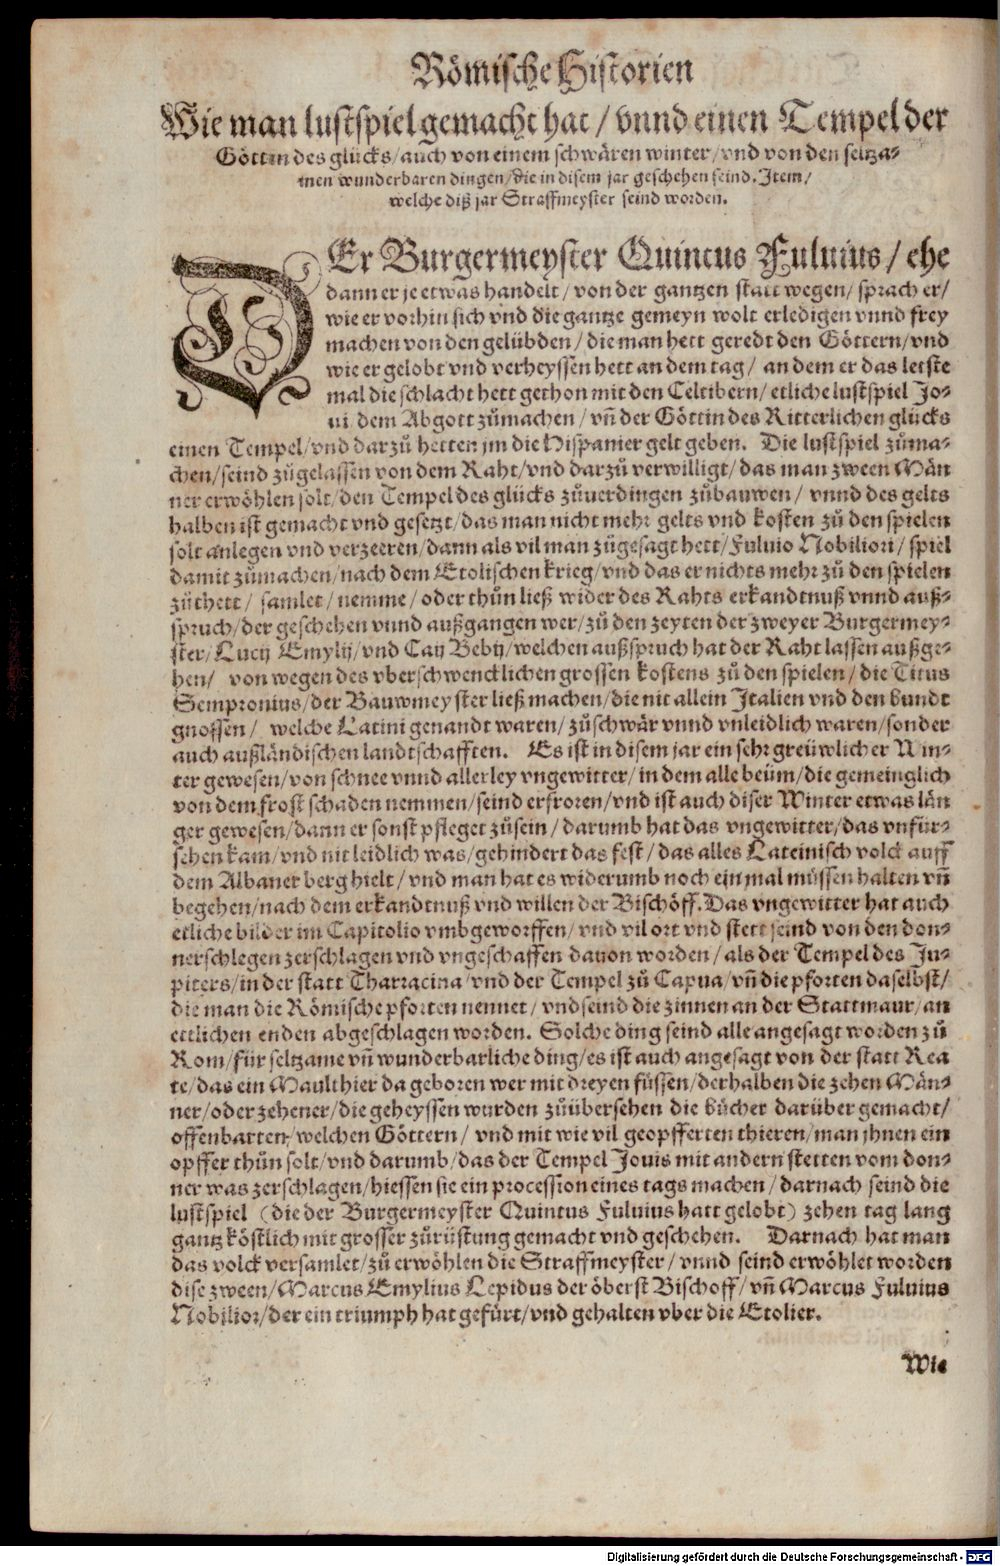 Römische Historien
Wie man lustspiel gemacht hat / vnnd einen Tempel der
Göttin des glücks / auch von einem schwären winter / vnd von den seltza-
men wunderbaren dingen / die in disem jar geschehen seind. Item /
welche diß jar Straffmeyster seind worden.
DEr Burgermeyster Quintus Fuluius / ehe
dann er je etwas handelt / von der gantzen statt wegen / sprach er /
wie er vorhin sich vnd die gantze gemeyn wolt erledigen vnnd frey
machen von den gelübden / die man hett geredt den Göttern / vnd
wie er gelobt vnd verheyssen hett an dem tag / an dem er das letste
mal die schlacht hett gethon mit den Celtibern / etliche lustspiel Jo-
ui dem Abgott zůmachen / vñ der Göttin des Ritterlichen glücks
einen Tempel / vnd darzů hetten jm die Hispanier gelt geben. Die lustspiel zůma-
chen / seind zůgelassen von dem Raht / vnd darzů verwilligt / das man zween Män
ner erwöhlen solt / den Tempel des glücks zůuerdingen zůbauwen / vnnd des gelts
halben ist gemacht vnd gesetzt / das man nicht mehr gelts vnd kosten zů den spielen
solt anlegen vnd verzeeren / dann als vil man zůgesagt hett / Fuluio Nobiliori / spiel
damit zůmachen / nach dem Etolischen krieg / vnd das er nichts mehr zů den spielen
zůthett / samlet / nemme / oder thůn ließ wider des Rahts erkandtnuß vnnd auß-
spruch / der geschehen vnnd außgangen wer / zů den zeyten der zweyer Burgermey-
ster / Lucij Emylij / vnd Caij Bebij / welchen außspruch hat der Raht lassen außge-
hen / von wegen des vberschwencklichen grossen kostens zů den spielen / die Titus
Sempronius / der Bauwmeyster ließ machen / die nit allein Italien vnd den bundt
gnossen / welche Latini genandt waren / zůschwär vnnd vnleidlich waren / sonder
auch außländischen landtschafften. Es ist in disem jar ein sehr greüwlicher Win-
ter gewesen / von schnee vnnd allerley vngewitter / in dem alle beüm / die gemeinglich
von dem frost schaden nemmen / seind erfroren / vnd ist auch diser Winter etwas län
ger gewesen / dann er sonst pfleget zůsein / darumb hat das vngewitter / das vnfür-
sehen kam / vnd nit leidlich was / gehindert das fest / das alles Lateinisch volck auff
dem Albaner berg hielt / vnd man hat es widerumb noch ein mal müssen halten vñ
begehen / nach dem erkandtnuß vnd willen der Bischöff. Das vngewitter hat auch
etliche bilder im Capitolio vmbgeworffen / vnd vil ort vnd stett seind von den don-
nerschlegen zerschlagen vnd vngeschaffen dauon worden / als der Tempel des Ju-
piters / in der statt Tharracina / vnd der Tempel zů Capua / vñ die pforten daselbst /
die man die Römische pforten nennet / vnd seind die zinnen an der Stattmaur / an
ettlichen enden abgeschlagen worden. Solche ding seind alle angesagt worden zů
Rom / für seltzame vñ wunderbarliche ding / es ist auch angesagt von der statt Rea
te / das ein Maulthier da geboren wer mit dreyen füssen / derhalben die zehen Män-
ner / oder zehener / die geheyssen wurden zůübersehen die bücher darüber gemacht /
offenbarten / welchen Göttern / vnd mit wie vil geopfferten thieren / man jhnen ein
opffer thůn solt / vnd darumb / das der Tempel Jouis mit andern stetten vom don-
ner was zerschlagen / hiessen sie ein procession eines tags machen / darnach seind die
lustspiel (die der Burgermeyster Quintus Fuluius hatt gelobt) zehen tag lang
gantz köstlich mit grosser zůrüstung gemacht vnd geschehen. Darnach hat man
das volck versamlet / zů erwöhlen die Straffmeyster / vnnd seind erwöhlet worden
dise zween / Marcus Emylius Lepidus der öberst Bischoff / vñ Marcus Fuluius
Nobilior / der ein triumph hat gefürt / vnd gehalten vber die Etolier.
Wie
Digitalisierung gefördert durch die Deutsche Forschungsgemeinschaft - DFG